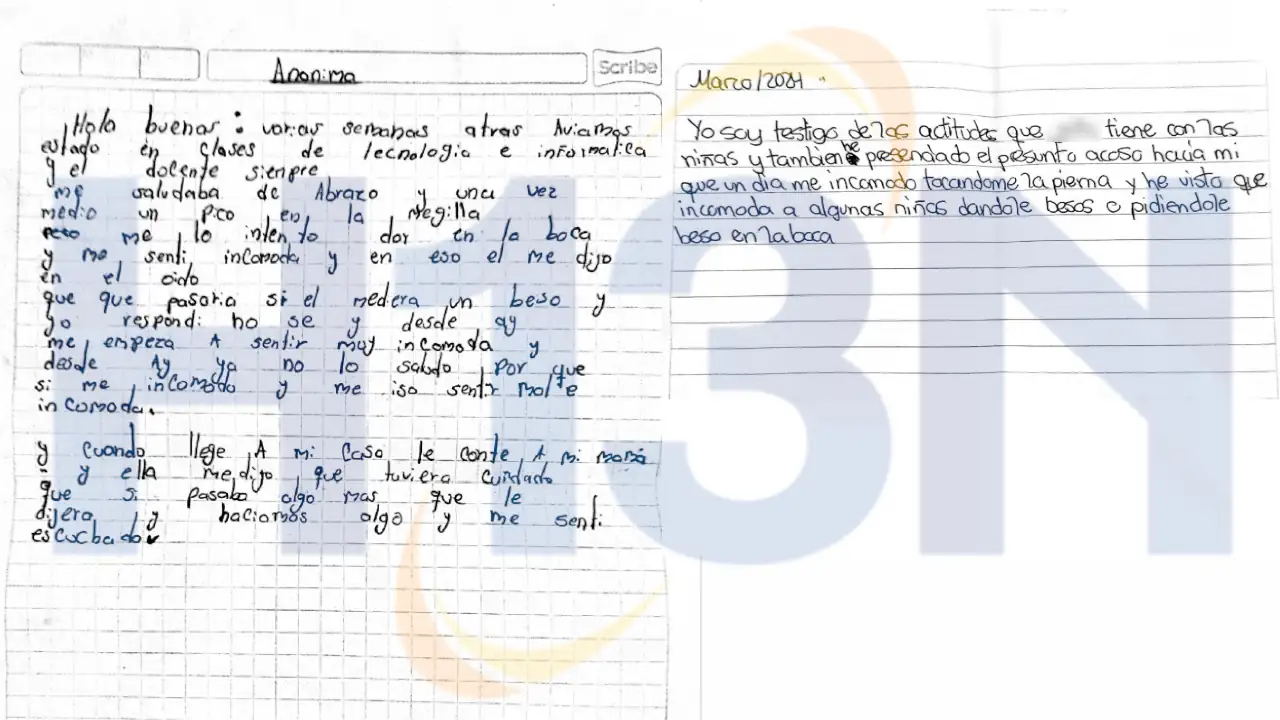 Anonima
Scribe
Hola buenas : varias semanas atras Aviamos
estado en clases de tecnologia e informatica
y el docente siempre
me saludaba de Abrazo y una vez
medio un Pico en la Megilla
pero me lo intento dar en la boca
y me senti incomoda y en eso el me dijo
en el oido
que que pasaria si el medera un beso y
yo respondi no se y desde ay
me empeza A sentir muy incomoda y
desde Ay ya no lo saludo por que
si me incomodo y me iso sentir
incomoda.
y cuando llege A mi Casa le conte A mi mamá
y ella medijo que tuviera cuidado
que si pasaba algo mas que le
dijera y haciamos algo y me senti
escuchado
Marzo/2024
Yo soy testigo de las actitudes que tiene con las
niñas y tambien he presenciado el presunto acoso hacia mi
que un dia me incomodo tocandome la pierna y he visto que
incomoda a algunas niñas dandole besos o pidiendole
beso en la boca
H13N